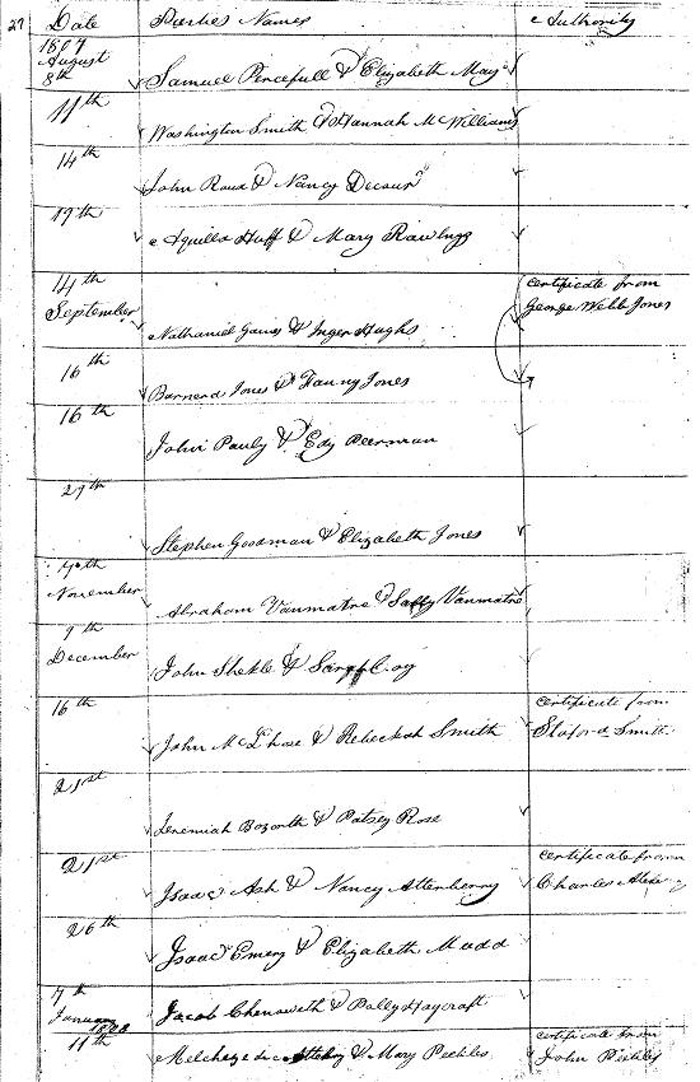 27 Date Parties Names Authority
1807
August
8th Samuel Percefull & Elizabeth May
11th Washington Smith & Hannah McWilliams
14th John Roux & Nancy
19th Aquilla Huff & Mary Rawlings
14th certificate from
September Nathaniel Gaines & Inger Hughs George Webb Jones
16th Barnerd Jones & Fanny Jones
16th John Pauly & Edy Peerman
27th Stephen Goodman & Elizabeth Jones
7th
November Abraham Vanmatre & Sally Vanmatre
9th
December John Shekle & Sarah Coy
16th certificate from
John McLhose & Rebeckah Smith Smith
21st Jeremiah Bozorth & Patsey Rose
21st certificate from
Isaac Ash & Nancy Attenberry Charles
26th Isaac Emery & Elizabeth Mudd
7th
January 1808 Jacob Chenowith & Polly Haycraft
11th certificate from
& Mary Peebles John